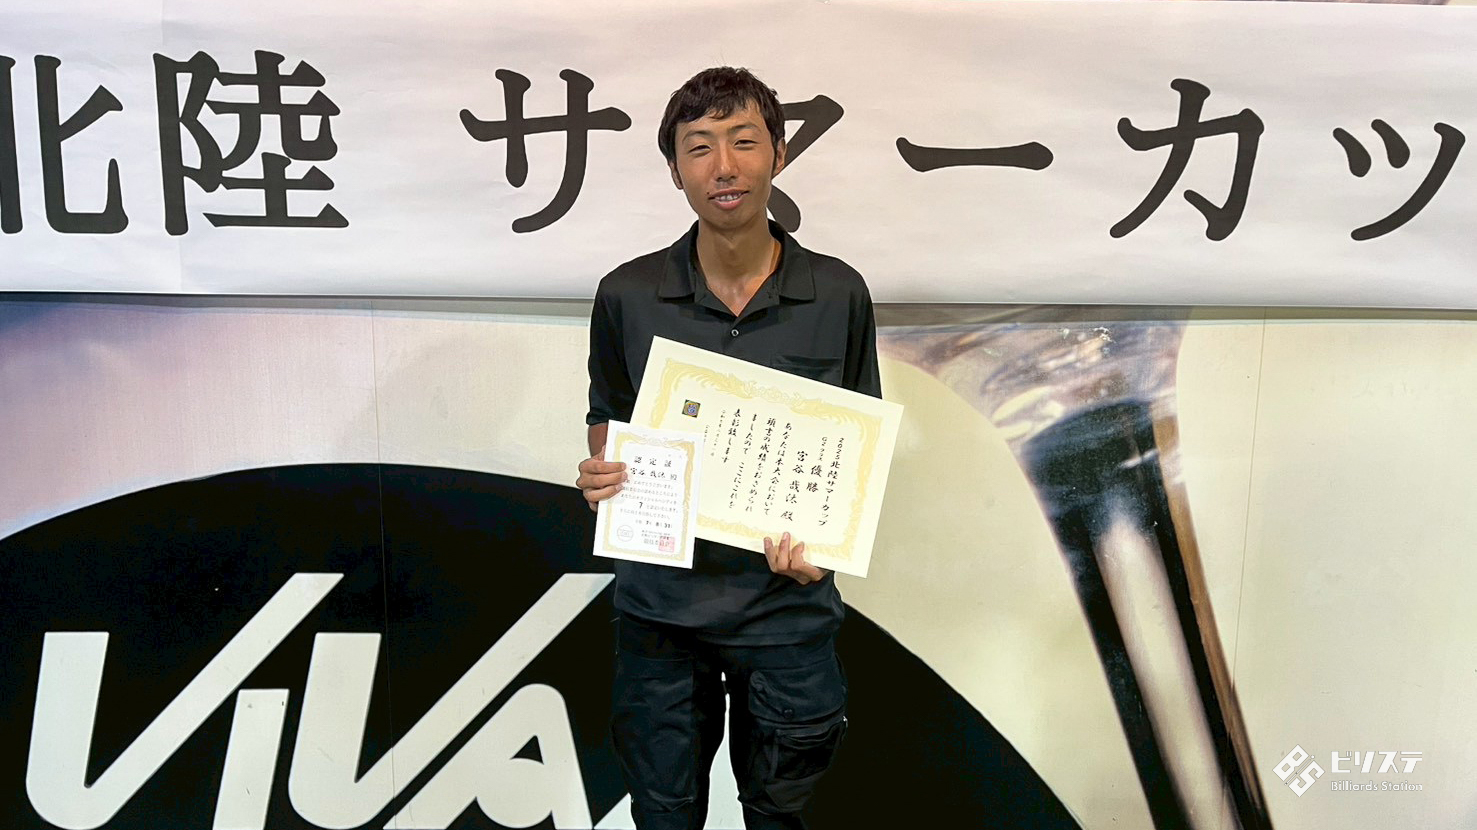 北陸 サマーカッ
2025北陸サマーカップ
G2クラス 優勝
宮谷 哉法 殿
あなたは本大会において
頭書の成績をおさめられ
ましたので ここにこれを
表彰致します
認定証
宮谷 哉法 殿
7
VIVA
ビリステ
Billiards Station